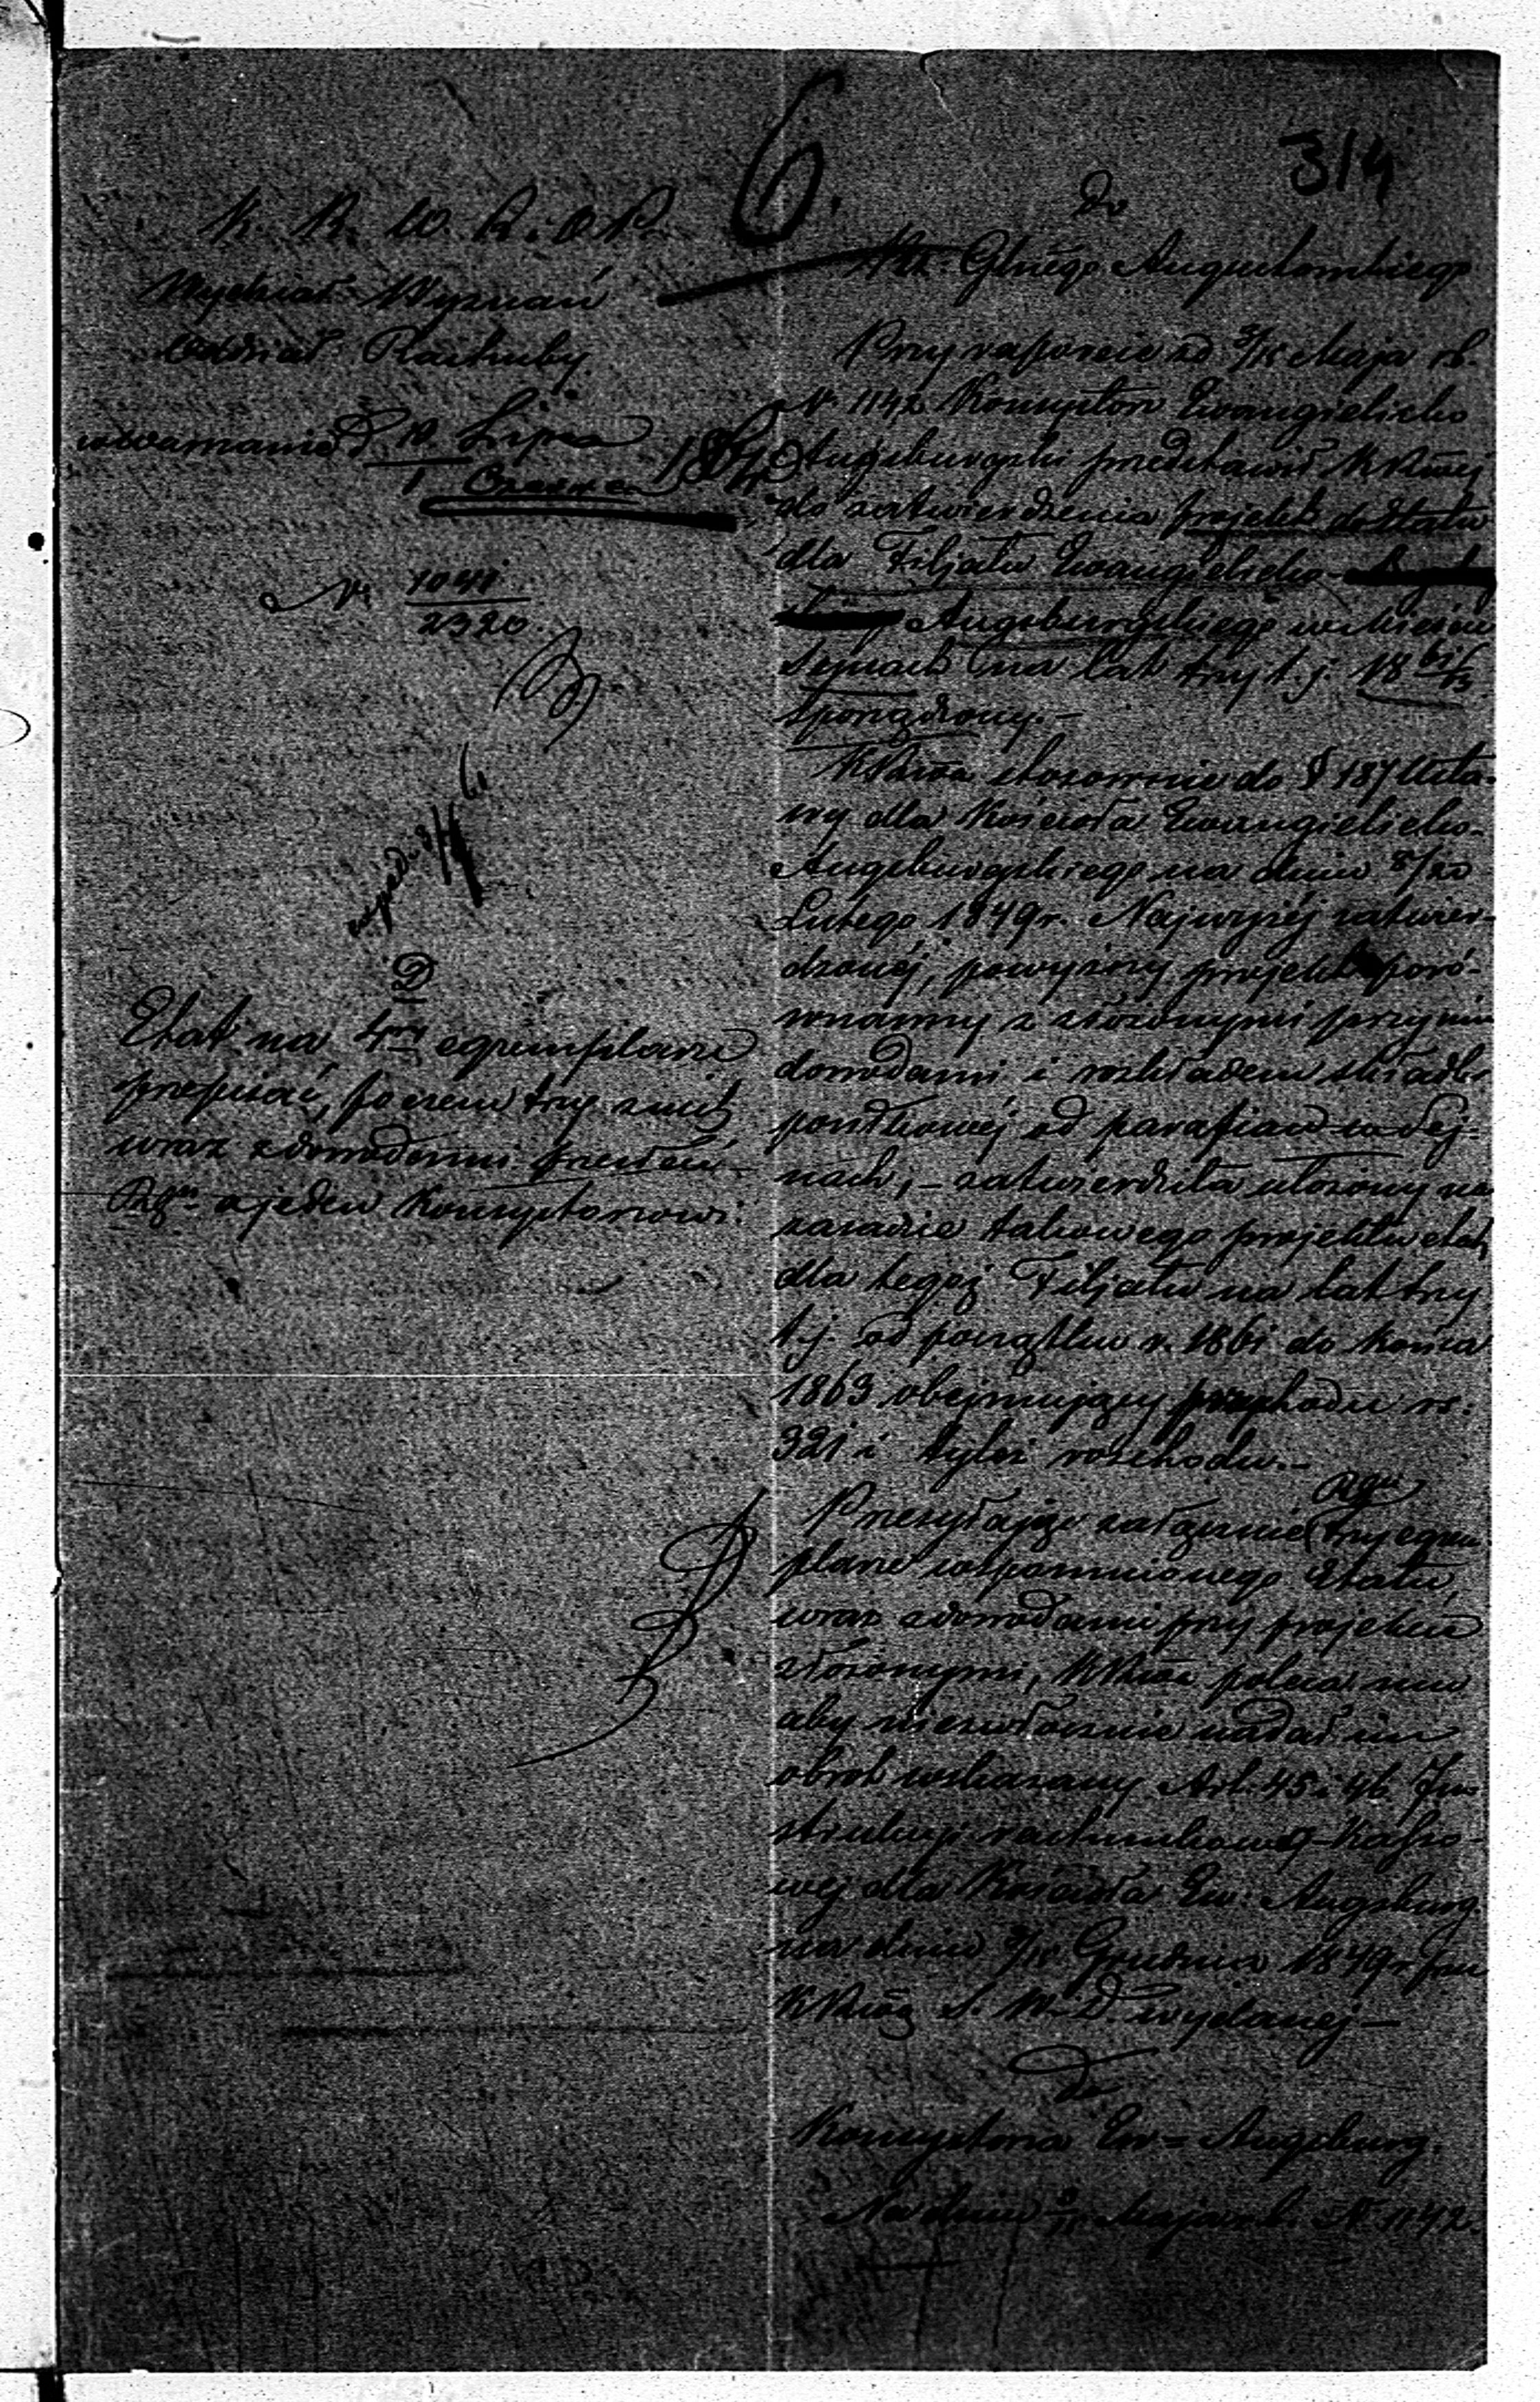 6.
314
K. R. W. R. i O. P.
Wydział Wyznań
Oddział Rachuby
w Warszawie d. 10 Lipca
Czerwca 1861
N. 1041
2320.
D
Etat na 4ry egzemplarze
przepisać, poczem trzy z nich
wraz z dowodami przesłać
Rzgu a jeden Konsystorzowi.
Do
Rz. Gbnego Augustowskiego
Przy raporcie z d. 3/15 Maja rb.
N. 1142 Konsystorz Ewangielicko
Augsburgski przedstawił KRząj
do zatwierdzenia projekt do Etatu
dla Filjału Ewangielicko
Augsburgskiego w mieście
Sejnach na lat trzy t. j. 1861/63
sporządzony.-
KRząa stosownie do § 187 Usta-
wy dla Kościoła Ewangielicko-
Augsburgskiego na dniu 8/20
Lutego 1849 r. Najwyżéj zatwier-
dzonéj, powyższy projekt poró-
wnawszy z złożonymi przy nim
dowodami i rozkładem składki
posiłkowéj od parafian w Sej-
nach, - zatwierdziła ułożony na
zasadzie takowego projektu etat
dla tegoż Filjału na lat trzy
t. j. od początku r. 1861 do końca
1863 obejmujący przychodu rs.
321 i tyleż rozchodu.-
Przesyłając załącznie Rzgu trzy egzem
plarze wspomnionego Etatu,
wraz z dowodami przy projekcie
złożonymi, KRząa poleca mu
aby niezwłocznie nadał im
obrót wskazany Art. 45 i 46 In-
strukcji rachunkowo-Kasso-
wej dla Kościoła Ew: Augsburg.
na dniu 3/15 Grudnia 1849 r. przez
KRząą S. W. D. wydanéj -
Do
Konsystorza Ew= Augsburg.
Na dniu 3/15 Maja rb. N. 1142.